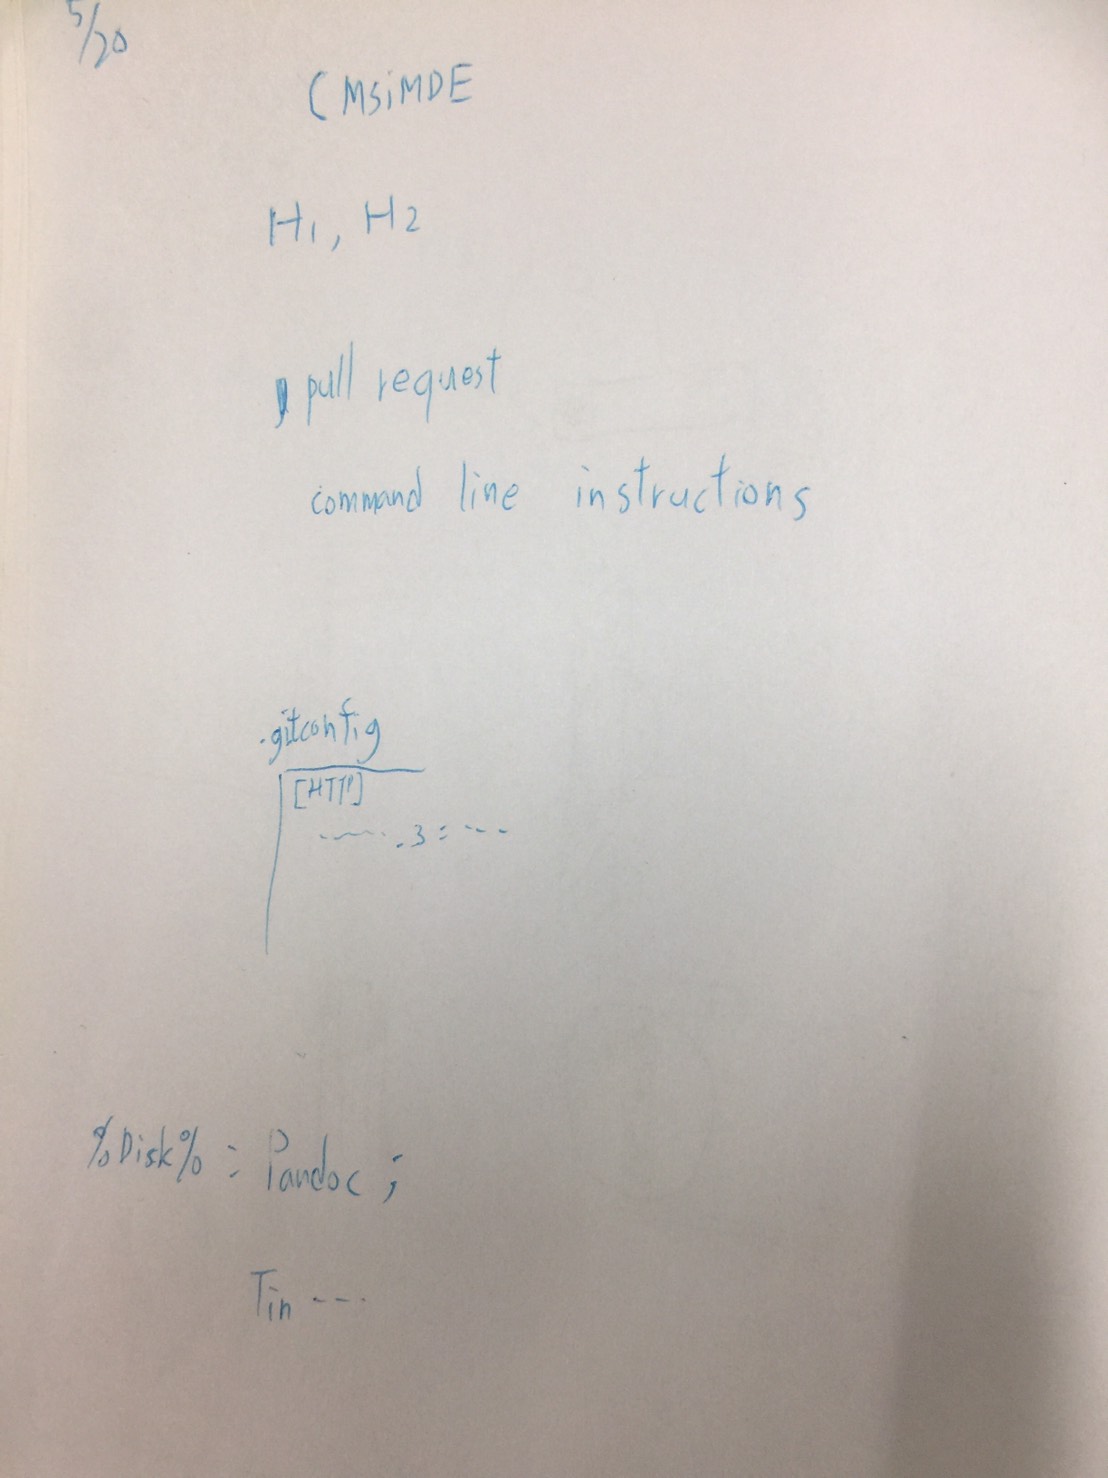 5/20
CMSiMDE
H1, H2
pull request
command line instructions
.gitconfig
[HTTP]
.3 = ---
%Disk% = Pandoc ;
Tin ---